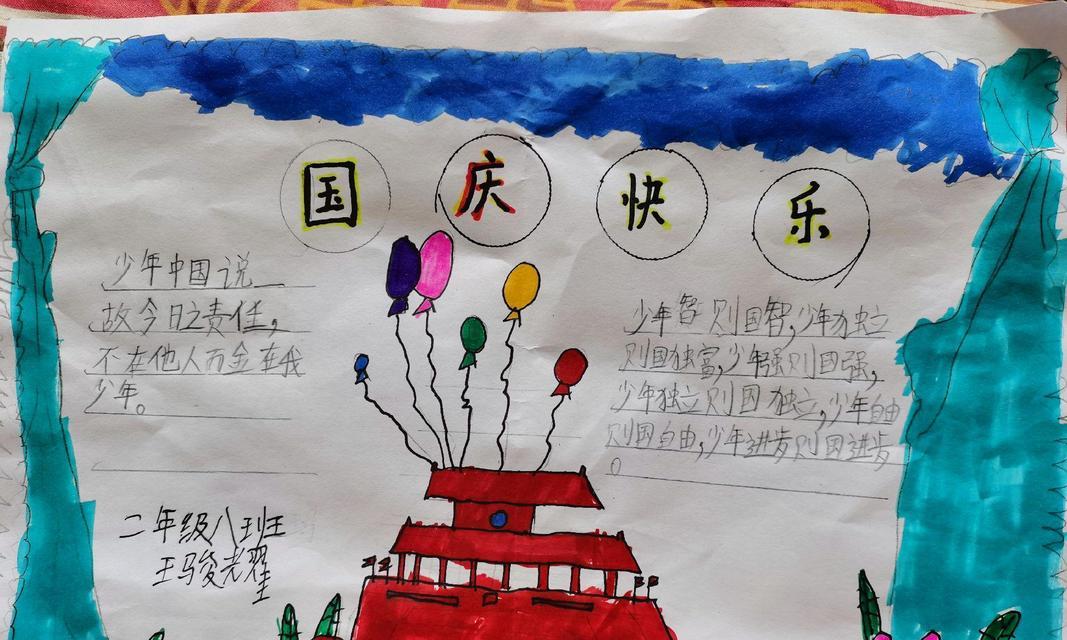 国庆快乐
少年中国说
故今日之责任,
不在他人而全在我
少年。
少年智则国智,少年独立
则国独富,少年强则国强,
少年独立则国独立,少年自由
则国自由,少年进步则国进步
。
二年级八班
王骏光耀